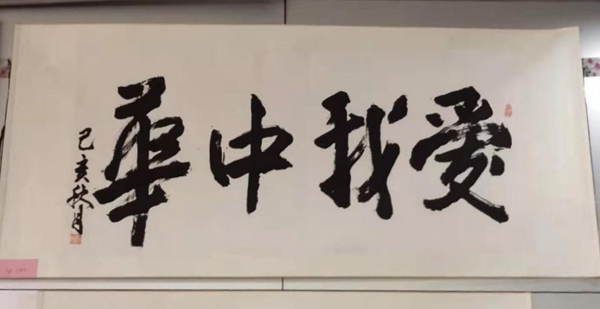 愛我中華
己亥秋月